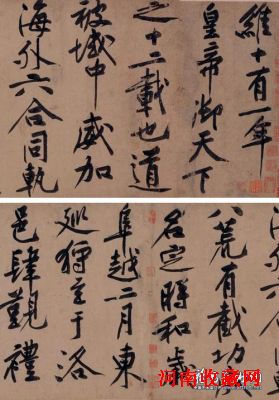 維十有一年
皇帝御天下
之十二載也道
被域中威加
海外六合同軌
八荒有截功成
名定時和歲
阜越二月東
巡狩至于洛
邑肆覲禮
河南收藏网